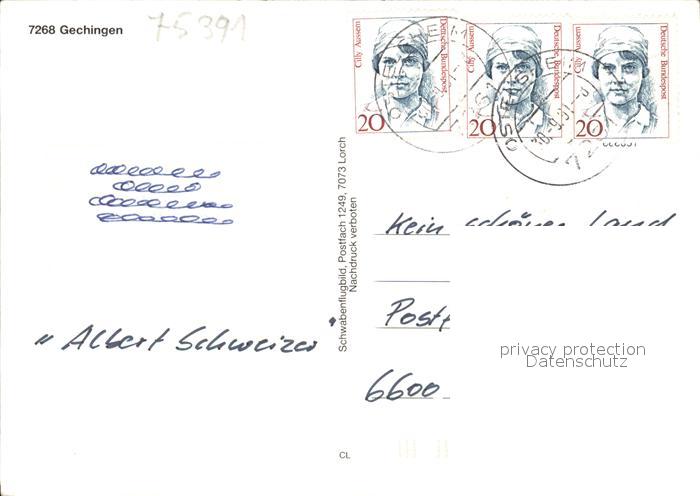 7268 Gechingen
75391
Cilly Aussem
Deutsche Bundespost
20
Cilly Aussem
Deutsche Bundespost
20
Cilly Aussem
Deutsche Bundespost
20
"Albert Schweizer"
Schwabenflugbild, Postfach 1249, 7073 Lorch
Nachdruck verboten
CL
Kein schöner Land
Post
6600
privacy protection
Datenschutz